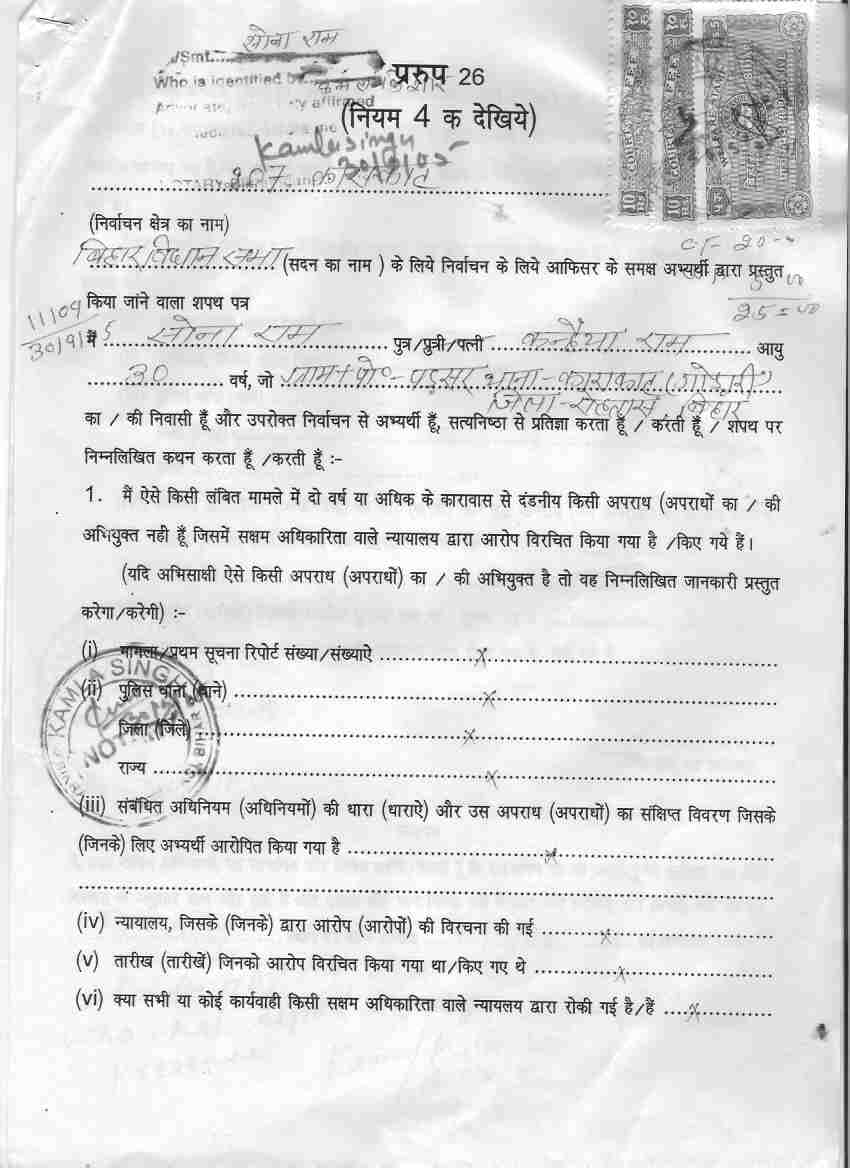 सोना राम
/Smt.
Who is identified by कमला सिंह
प्ररुप 26
(नियम 4 क देखिये)
Kamla Singh
30/9/05
207 काराकाट
(निर्वाचन क्षेत्र का नाम)
C.F- 20-
बिहार विधान सभा (सदन का नाम ) के लिये निर्वाचन के लिये आफिसर के समक्ष अभ्यर्थी द्वारा प्रस्तुत
किया जांने वाला शपथ पत्र
25=00
11109
30/9/05
मैं सोना राम पुत्र/प्रुत्री/पत्नी कन्हैया राम आयु
30 वर्ष, जो ग्राम+पो०-पड़सर थाना-काराकाट (गोड़ारी)
जिला-रोहतास, बिहार
का / की निवासी हूँ और उपरोक्त निर्वाचन से अभ्यर्थी हूँ, सत्यनिष्ठा से प्रतिज्ञा करता हूँ / करती हूँ / शपथ पर
निम्नलिखित कथन करता हूँ /करती हूँ :-
1. मैं ऐसे किसी लंबित मामले में दो वर्ष या अधिक के कारावास से दंडनीय किसी अपराध (अपराधों का / की
अभियुक्त नही हूँ जिसमें सक्षम अधिकारिता वाले न्यायालय द्वारा आरोप विरचित किया गया है /किए गये हैं।
(यदि अभिसाक्षी ऐसे किसी अपराध (अपराधों) का / की अभियुक्त है तो वह निम्नलिखित जानकारी प्रस्तुत
करेगा/करेगी) :-
(i) मामला/प्रथम सूचना रिपोर्ट संख्या/संख्याऐ x
(ii) पुलिस थाना (थाने) x
जिला (जिले) x
राज्य x
KAMLA SINGH
NOTARY
(iii) संबंधित अधिनियम (अधिनियमों) की धारा (धाराऐ) और उस अपराध (अपराधों) का संक्षिप्त विवरण जिसके
(जिनके) लिए अभ्यर्थी आरोपित किया गया है x
(iv) न्यायालय, जिसके (जिनके) द्वारा आरोप (आरोपों) की विरचना की गई x
(v) तारीख (तारीखें) जिनको आरोप विरचित किया गया था/किए गए थे x
(vi) क्या सभी या कोई कार्यवाही किसी सक्षम अधिकारिता वाले न्यायलय द्वारा रोकी गई है/हैं x